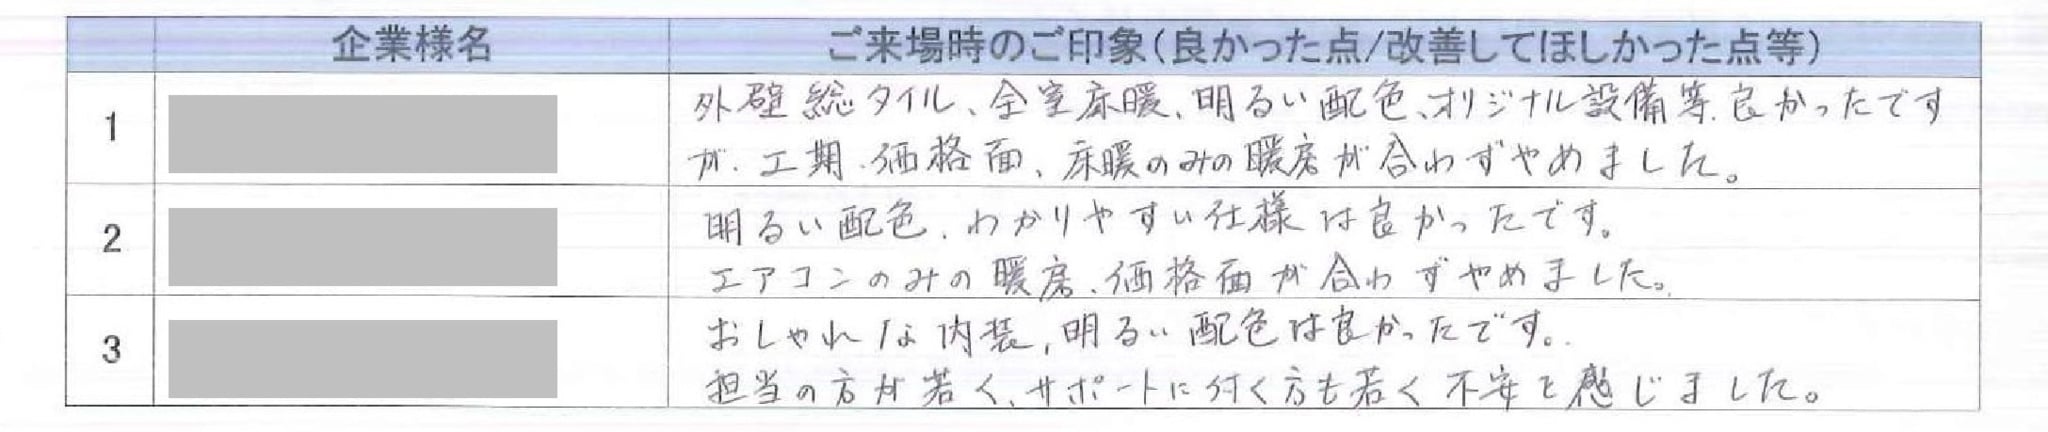 企業様名 ご来場時のご印象(良かった点/改善してほしかった点等)
1 外壁総タイル、全室床暖、明るい配色、オリジナル設備等、良かったです
が、工期、価格面、床暖のみの暖房が合わずやめました。
2 明るい配色、わかりやすい仕様は良かったです。
エアコンのみの暖房、価格面が合わずやめました。
3 おしゃれな内装、明るい配色は良かったです。
担当の方が若く、サポートに付く方も若く不安を感じました。